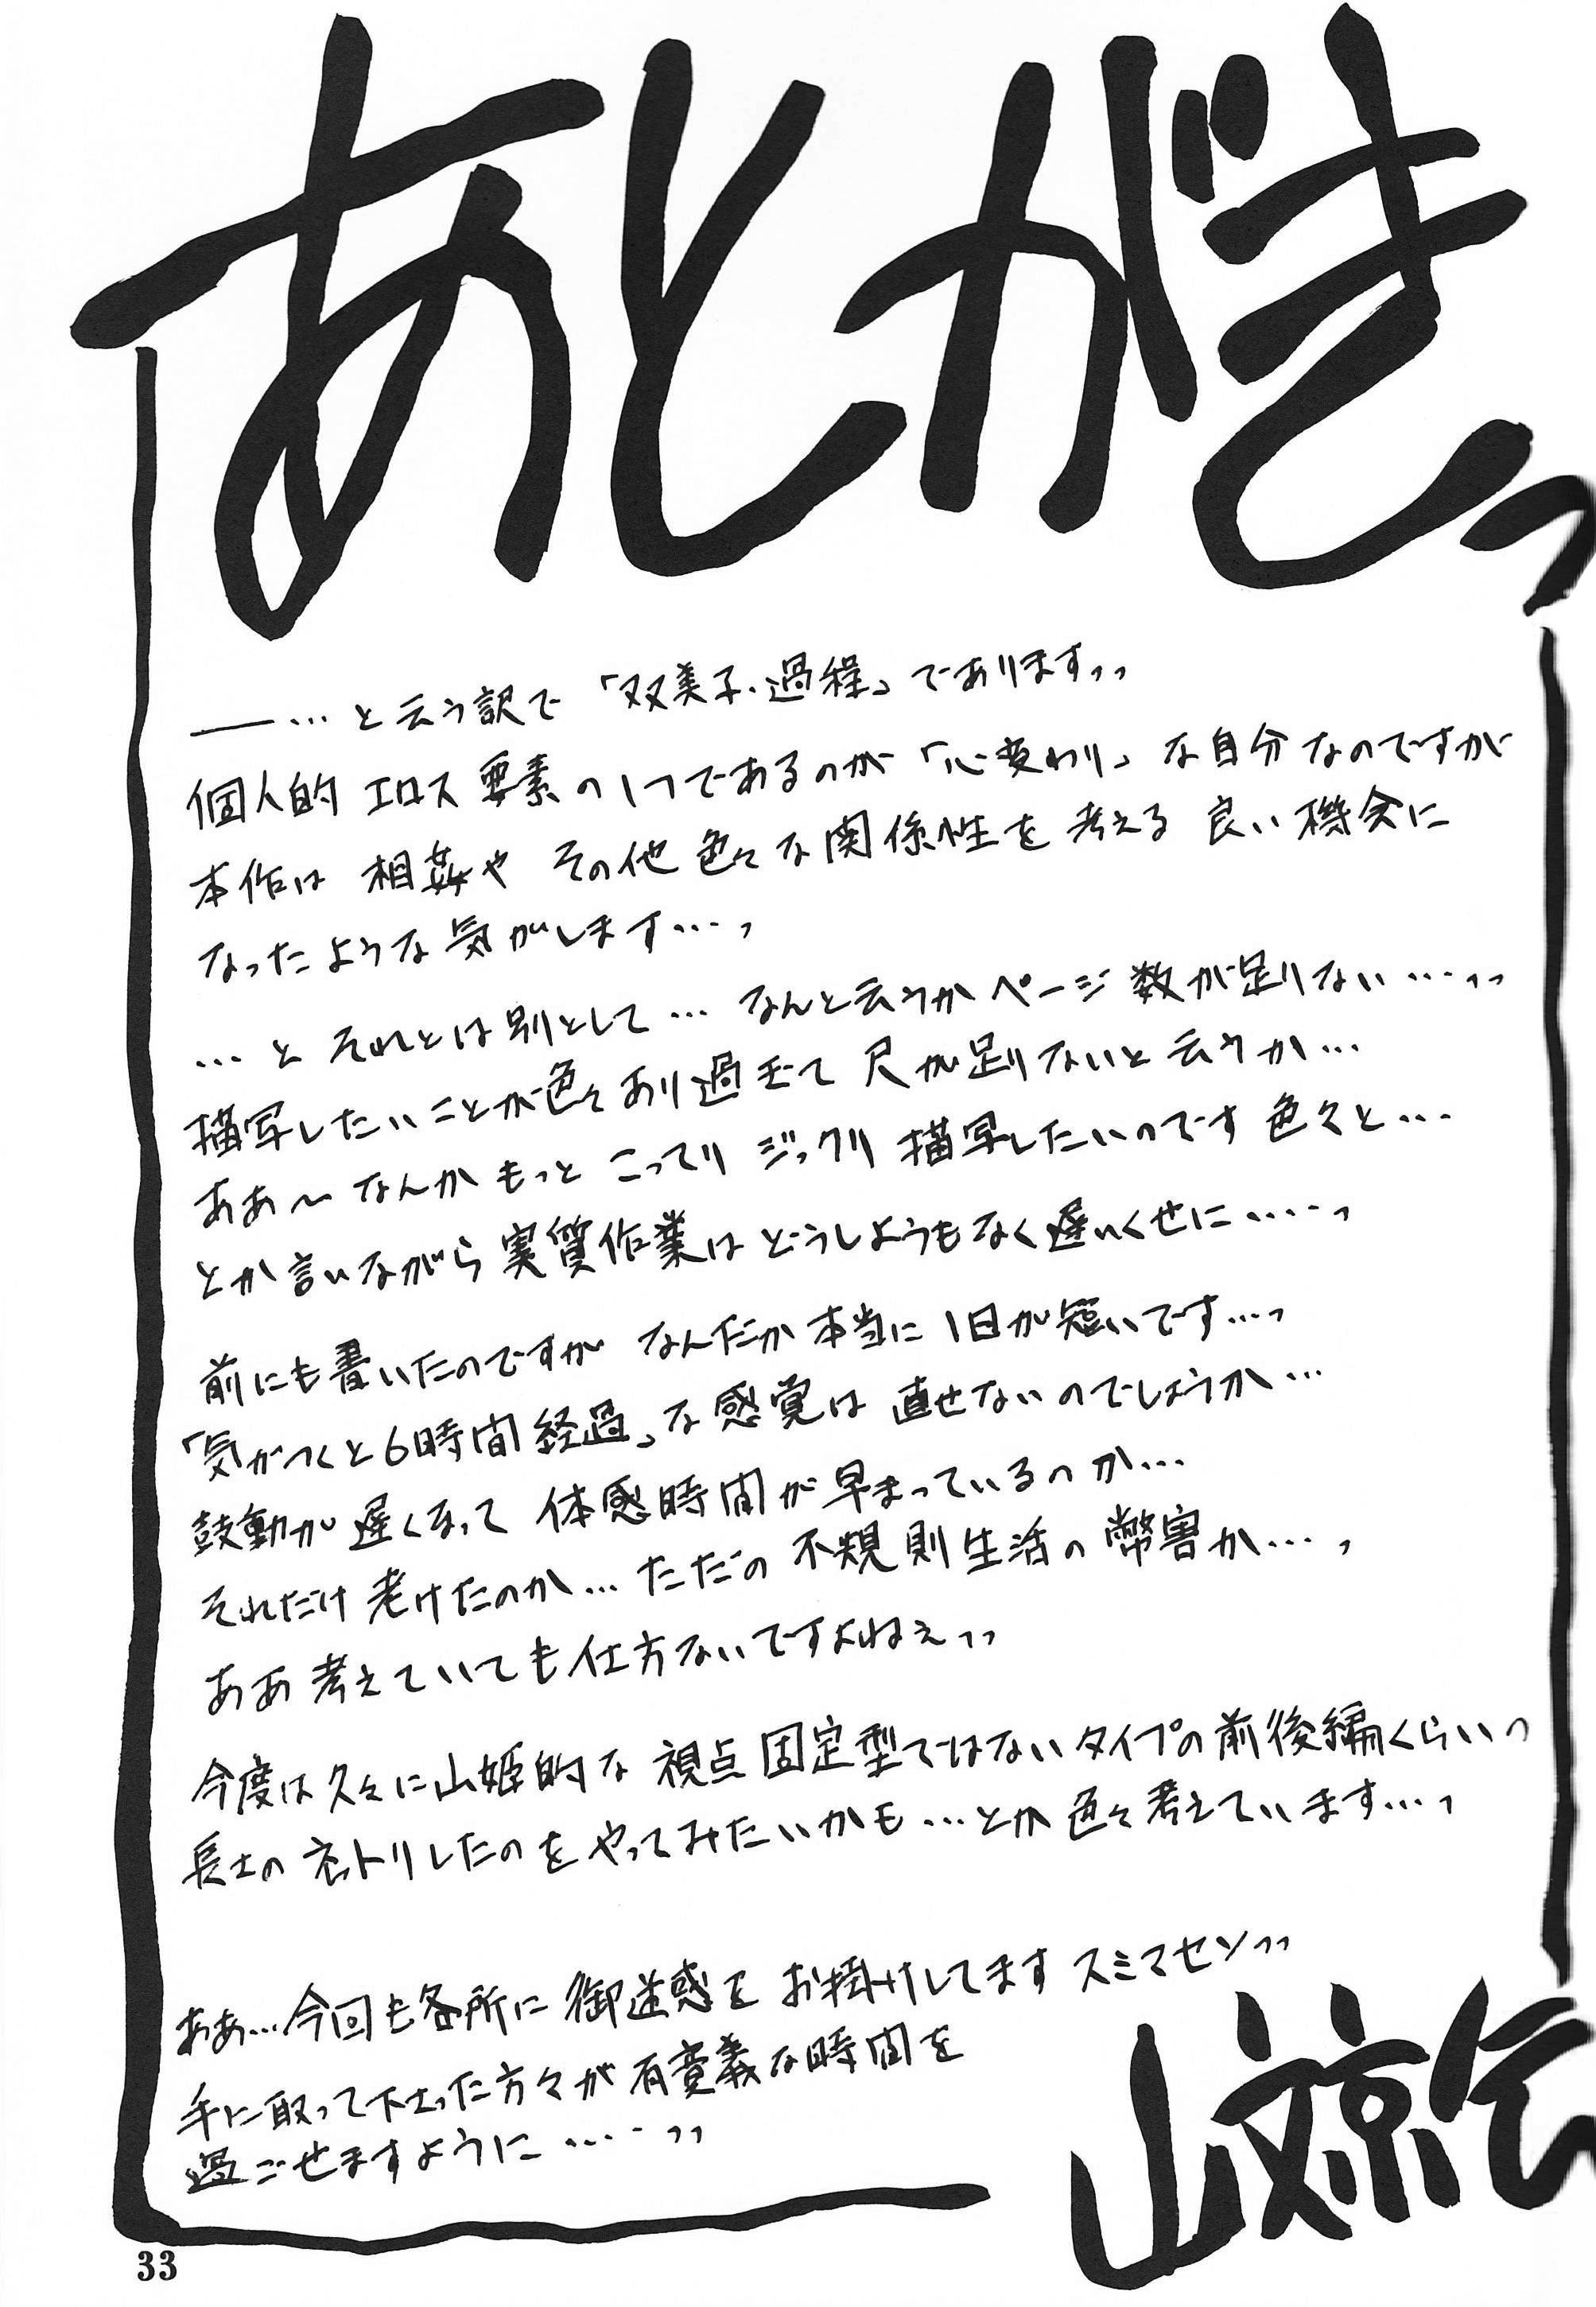 あとがきっ
──…と云う訳で「双美子・過程」でありますっっ
個人的エロス要素の1つであるのが「心変わり」な自分なのですが
本作は 相姦や その他 色々な関係性を 考える 良い機会に
なったような気がします…っ
…と それとは別として… なんと云うかページ数が足りない…っっ
描写したいことが色々あり過ぎて 尺が足りないと云うか…
ああ〜なんか もっと こってり ジックリ 描写したいのです 色々と…
とか言いながら実質作業は どうしようもなく遅いくせに……っ
前にも書いたのですが なんだか本当に 1日が短いです…っ
「気がつくと6時間経過」な感覚は 直せないのでしょうか…
鼓動が遅くなって 体感時間が早まっているのか…
それだけ老けたのか…ただの 不規則生活の弊害か…っ
ああ考えていても仕方ないですよねぇっっ
今度は久々に山姫的な 視点固定型ではないタイプの前後編くらいっ
長士の ネトリしたのを やってみたいかも…とか 色々考えています…っ
ああ…今回も各所に 御迷惑を お掛けしてます スミマセンっっ
手に取って下さった方々が有意義な時間を
過ごせますように……っっ
山文京伝
33